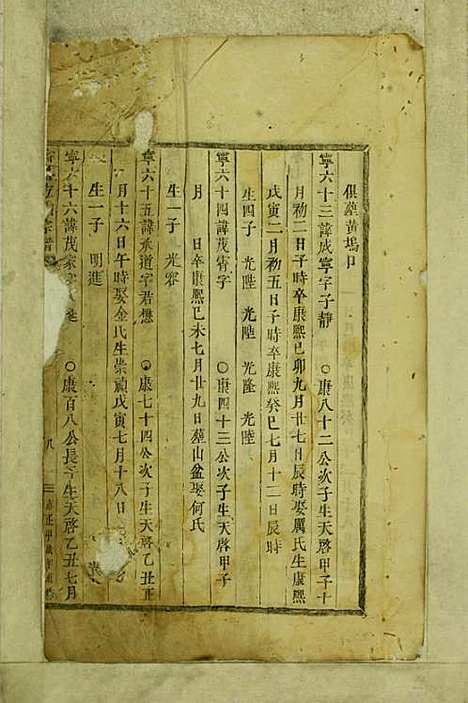 俱塟黄塢口
寧六十三諱成寧字子靜 ○康八十二公次子生天啓甲子十
月初二日子時卒康熙己卯九月廿七辰時娶厲氏生康熙
戊寅二月初五日子時卒康熙癸巳七月十二日辰時
生四子 光陛 光陸 光隆 光陞
寧六十四諱茂寄字 ○康四十三公次子生天啓甲子
月 日卒康熙己未七月廿九日塟山盆娶何氏
生一子 光容
寧六十五諱承道字君懋 ○康七十四公次子生天啓乙丑正
月十六日午時娶金氏生崇禎戊寅七月十八日
生一子 明進
寧六十六諱茂 字 ○康百八公長子生天啓乙丑七月
八 正甲